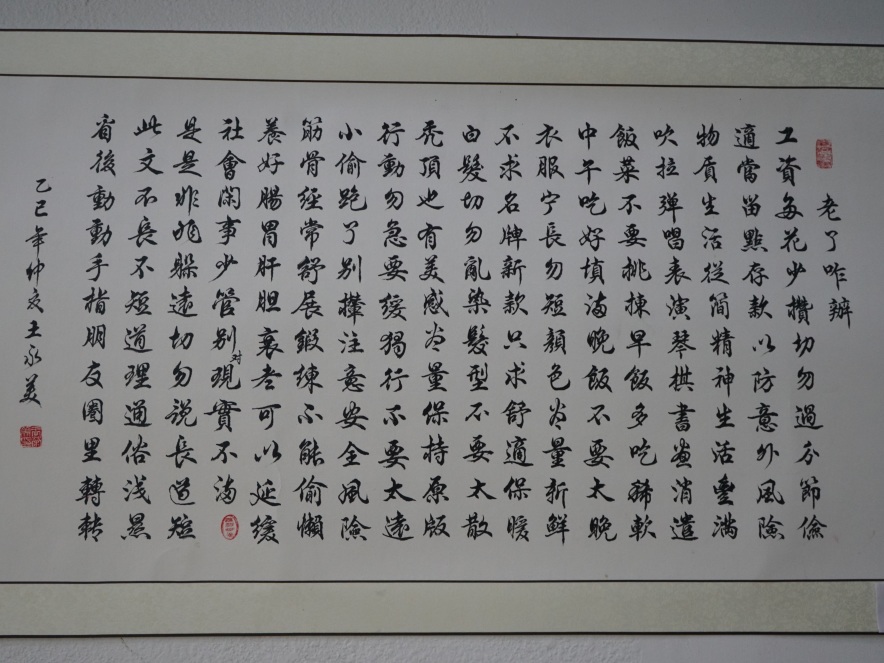 老了咋辦
工資每花少攢切勿過分節儉
適當留點存款以防意外風險
物質生活從簡精神生活豐滿
吹拉彈唱表演琴棋書畫消遣
飯菜不要挑揀早飯多吃稀軟
中午吃好填滿晚飯不要太晚
衣服宁長勿短顏色尽量新鮮
不求名牌新款只求舒適保暖
白髮切勿亂染髮型不要太散
禿頂也有美感尽量保持原版
行動勿急要緩獨行不要太遠
小偷跑了別攆注意安全風險
筋骨經常舒展鍛練不能偷懶
養好腸胃肝胆衰老可以延緩
社會閑事少管別对現實不滿
是是非非躲遠切勿說長道短
此文不長不短道理通俗淺顯
看後動動手指朋友圈里轉转
乙巳年仲夏王永美